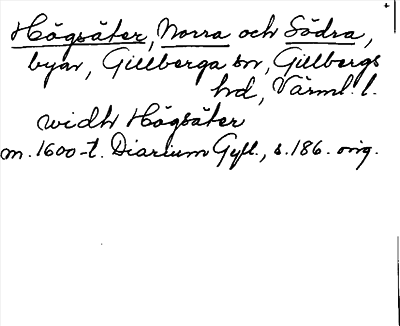 Högsäter, Norra och Södra,
byar, Gillberga sn, Gillbergs
hd, Värml. l.
widh Högsäter
m. 1600-t. Diarium Gyll., s. 186. orig.